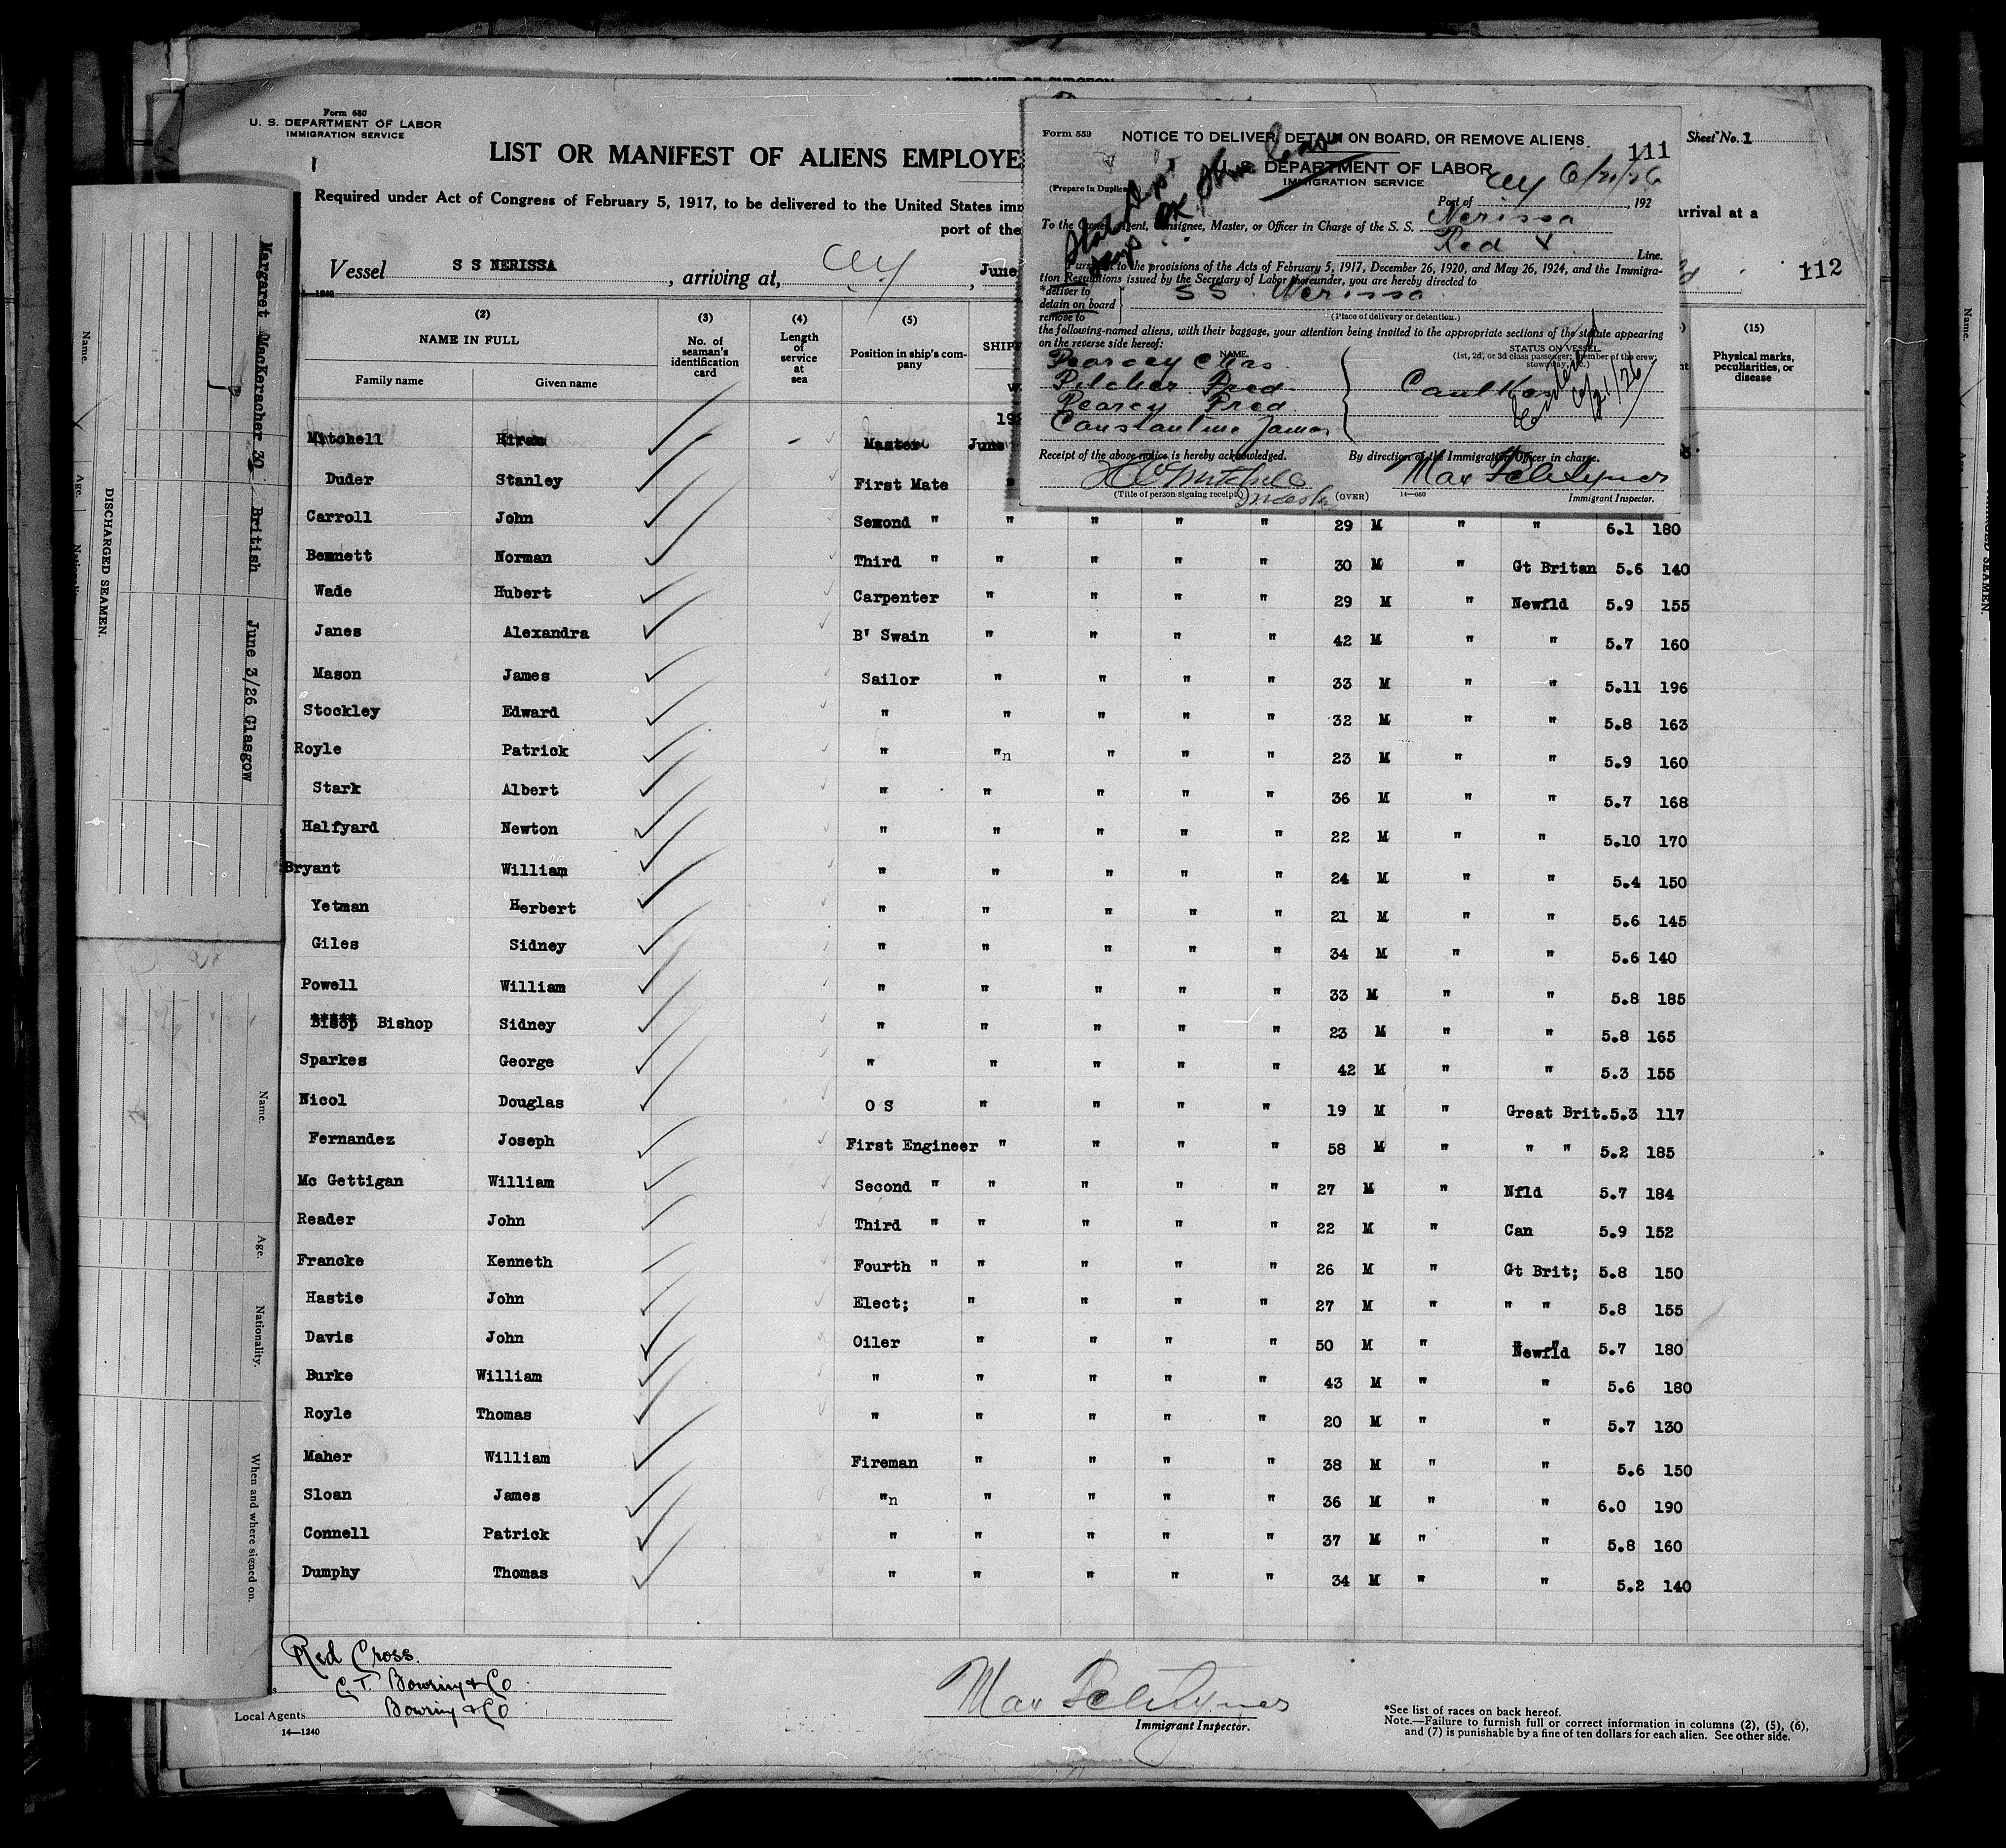 Form 680
U. S. DEPARTMENT OF LABOR
IMMIGRATION SERVICE
LIST OR MANIFEST OF ALIENS EMPLOYE
Required under Act of Congress of February 5, 1917, to be delivered to the United States imm
port of the
Vessel S S NERISSA, arriving at, , June
Sheet No. 1
arrival at a
112
Form 559
NOTICE TO DELIVER, DETAIN ON BOARD, OR REMOVE ALIENS
111
U. S. DEPARTMENT OF LABOR
IMMIGRATION SERVICE
(Prepare in Duplicate)
6/21/26
Port of , 192
To the Owner, Agent, Consignee, Master, or Officer in Charge of the S. S. Nerissa
Red X Line.
Pursuant to the provisions of the Acts of February 5, 1917, December 26, 1920, and May 26, 1924, and the Immigra-
tion Regulations issued by the Secretary of Labor thereunder, you are hereby directed to
*deliver to
detain on board
remove to
SS Nerissa
(Place of delivery or detention.)
the following-named aliens, with their baggage, your attention being invited to the appropriate sections of the statute appearing
on the reverse side hereof:
NAME.
STATUS ON VESSEL
(1st, 2d, or 3d class passenger; member of the crew; stowaway, etc.)
Pearcey Chas
Pilcher Fred
Pearcy Fred
Constantine James
6/21/26
Receipt of the above notice is hereby acknowledged.
By direction of the Immigration Officer in charge.
(Title of person signing receipt.)
(OVER)
14—660
Immigrant Inspector.
(2)
NAME IN FULL
Family name Given name
(3)
No. of seaman's identification card
(4)
Length of service at sea
(5)
Position in ship's company
SHIPP
(15)
Physical marks, peculiarities, or disease
Mitchell Hiram - Master June
Duder Stanley First Mate "
Carroll John Second " " " " " 29 M " " 6.1 180
Bennett Norman Third " " " " " 30 M " Gt Britan 5.6 140
Wade Hubert Carpenter " " " " 29 M " Newfld 5.9 155
Janes Alexandra B' Swain " " " " 42 M " " 5.7 160
Mason James Sailor " " " " 33 M " " 5.11 196
Stockley Edward " " " " " 32 M " " 5.8 163
Royle Patrick " "n " " " 23 M " " 5.9 160
Stark Albert " " " " " 36 M " " 5.7 168
Halfyard Newton " " " " " 22 M " " 5.10 170
Bryant William " " " " " 24 M " " 5.4 150
Yetman Herbert " " " " " 21 M " " 5.6 145
Giles Sidney " " " " " 34 M " " 5.6 140
Powell William " " " " " 33 M " " 5.8 185
Bisop Bishop Sidney " " " " " 23 M " " 5.8 165
Sparkes George " " " " " 42 M " " 5.3 155
Nicol Douglas O S " " " " 19 M " Great Brit. 5.3 117
Fernandez Joseph First Engineer " " " " 58 M " " " 5.2 185
Mc Gettigan William Second " " " " " 27 M " Nfld 5.7 184
Reader John Third " " " " " 22 M " Can 5.9 152
Francke Kenneth Fourth " " " " " 26 M " Gt Brit; 5.8 150
Hastie John Elect; " " " " 27 M " " " 5.8 155
Davis John Oiler " " " " 50 M " Newfld 5.7 180
Burke William " " " " " 43 M " " 5.6 180
Royle Thomas " " " " " 20 M " " 5.7 130
Maher William Fireman " " " " 38 M " " 5.6 150
Sloan James "n " " " " 36 M " " 6.0 190
Connell Patrick " " " " " 37 M " " 5.8 160
Dumphy Thomas " " " " " 34 M " " 5.2 140
Red Cross.
C. T. Bowring & Co
Local Agents Bowring & Co
14—1240
Immigrant Inspector.
*See list of races on back hereof.
Note.—Failure to furnish full or correct information in columns (2), (5), (6),
and (7) is punishable by a fine of ten dollars for each alien. See other side.
Margaret MacKeracher 30 British June 3/26 Glasgow
DISCHARGED SEAMEN.
Name.
Age.
Name.
Age.
Nationality.
When and where signed on.